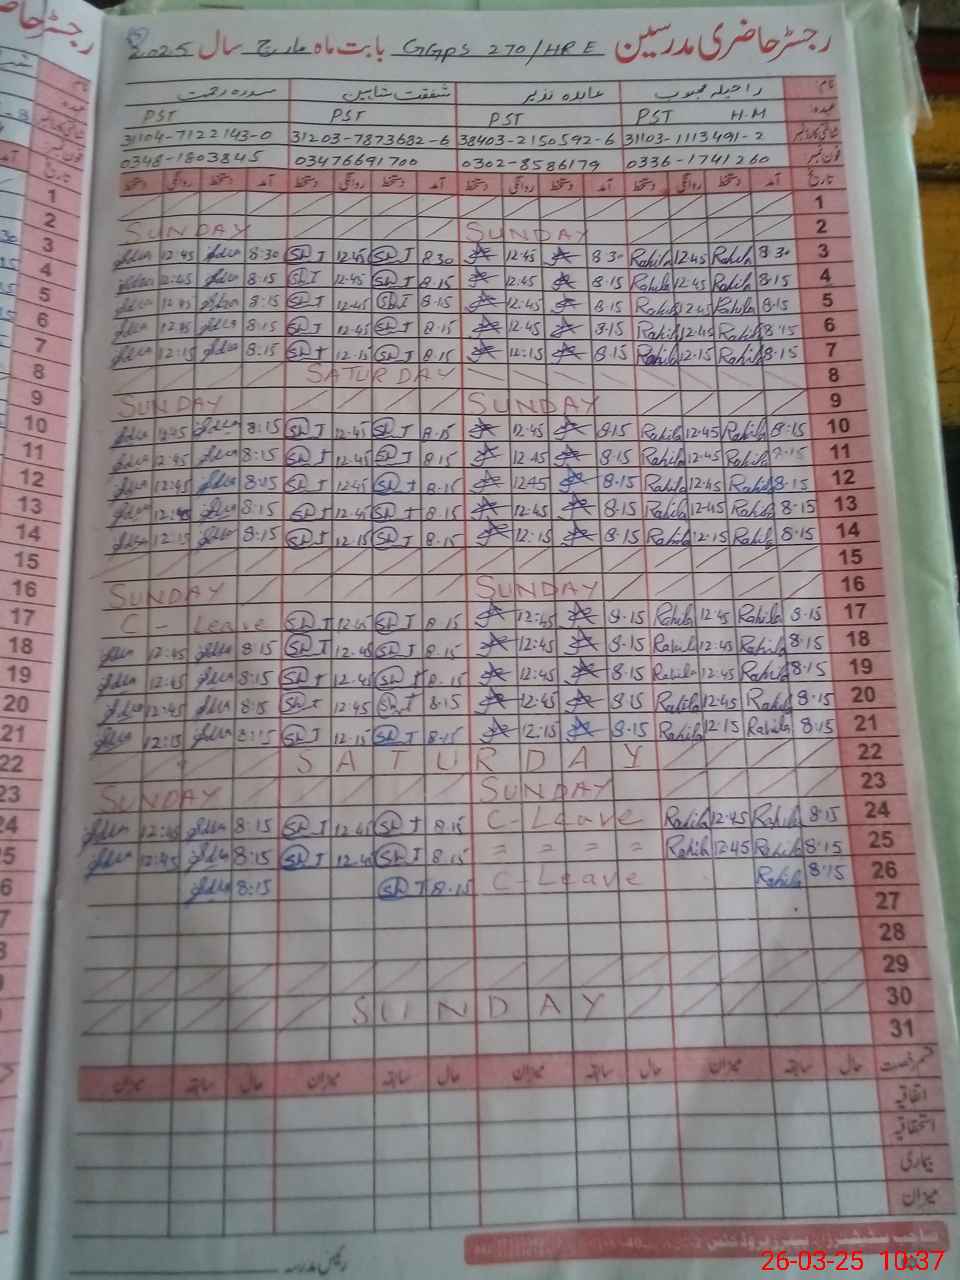 رجسٹر حاضری مدرسین GGPS 270/HR E بابت ماہ مارچ سال 2025
نام راحیلہ محبوب عابدہ نذیر شفقت شاہین سدرہ رحمت
عہدہ H.M PST PST PST PST
شناختی کارڈ نمبر 31103-1113491-2 38403-2150592-6 31203-7873682-6 31104-7122143-0
فون نمبر 0336-1741260 0302-8586179 03476691700 0348-1803845
تاریخ آمد دستخط روانگی دستخط آمد دستخط روانگی دستخط آمد دستخط روانگی دستخط آمد دستخط روانگی دستخط
1
2 SUNDAY SUNDAY
3 8:30 Rahila 12:45 Rahila 8:30 12:45 8:30 12:45 8:30 12:45
4 8:15 Rahila 12:45 Rahila 8:15 12:45 8:15 12:45 8:15 12:45
5 8:15 Rahila 12:45 Rahila 8:15 12:45 8:15 12:45 8:15 12:45
6 8:15 Rahila 12:45 Rahila 8:15 12:45 8:15 12:45 8:15 12:45
7 8:15 Rahila 12:15 Rahila 8:15 12:15 8:15 12:15 8:15 12:15
8 SATURDAY
9 SUNDAY SUNDAY
10 8:15 Rahila 12:45 Rahila 8:15 12:45 8:15 12:45 8:15 12:45
11 8:15 Rahila 12:45 Rahila 8:15 12:45 8:15 12:45 8:15 12:45
12 8:15 Rahila 12:45 Rahila 8:15 12:45 8:15 12:45 8:15 12:45
13 8:15 Rahila 12:45 Rahila 8:15 12:45 8:15 12:45 8:15 12:45
14 8:15 Rahila 12:15 Rahila 8:15 12:15 8:15 12:15 8:15 12:15
15
16 SUNDAY SUNDAY
17 8:15 Rahila 12:45 Rahila 8:15 12:45 8:15 12:45 C- Leave
18 8:15 Rahila 12:45 Rahila 8:15 12:45 8:15 12:45 8:15 12:45
19 8:15 Rahila 12:45 Rahila 8:15 12:45 8:15 12:45 8:15 12:45
20 8:15 Rahila 12:45 Rahila 8:15 12:45 8:15 12:45 8:15 12:45
21 8:15 Rahila 12:15 Rahila 8:15 12:15 8:15 12:15 8:15 12:15
22 SATURDAY
23 SUNDAY SUNDAY
24 8:15 Rahila 12:45 Rahila C-Leave 8:15 12:45 8:15 12:45
25 8:15 Rahila 12:45 Rahila = = = = 8:15 12:45 8:15 12:45
26 8:15 Rahila C-Leave 8:15 8:15
27
28
29
30 SUNDAY
31
قسم رخصت حال سابقہ میزان حال سابقہ میزان حال سابقہ میزان حال سابقہ میزان
اتفاقیہ
استحقاقیہ
بیماری
میزان
رئیس مدرسہ
26-03-25 10:37